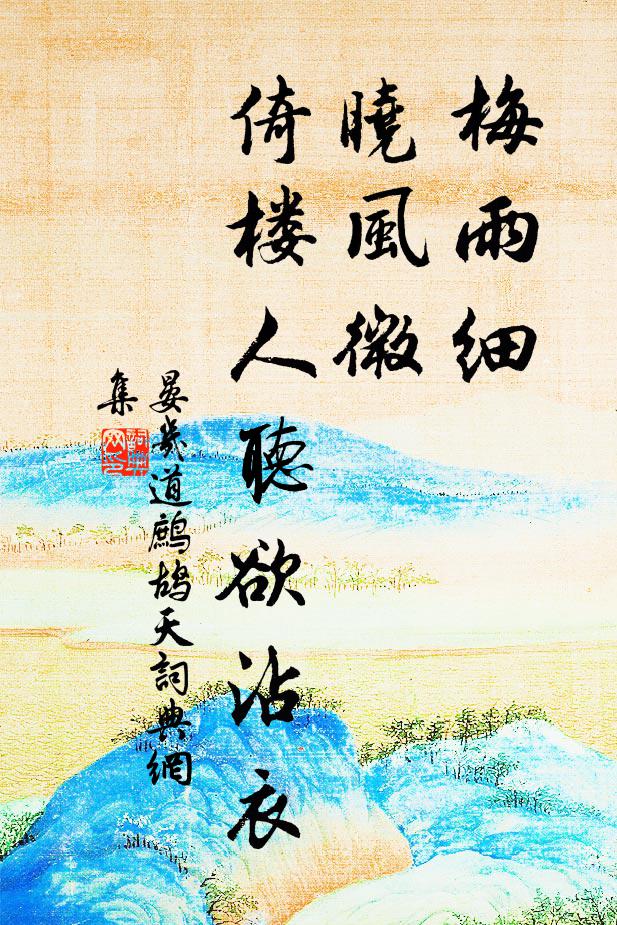 梅雨细
曉風微
倚楼人聽欲沾衣
晏幾道鷓鴣天詞典網
集